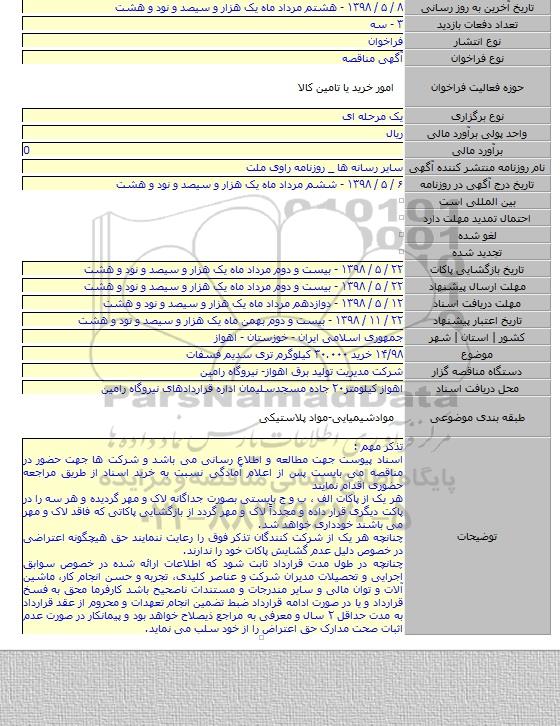 تاریخ آخرین به روز رسانی ۸ / ۵ / ۱۳۹۸ - هشتم مرداد ماه یک هزار و سیصد و نود و هشت
تعداد دفعات بازدید ۳ - سه
نوع انتشار فراخوان
نوع فراخوان آگهی مناقصه
حوزه فعالیت فراخوان امور خرید یا تامین کالا
نوع برگزاری یک مرحله ای
واحد پولی برآورد مالی ریال
برآورد مالی 0
نام روزنامه منتشر کننده آگهی سایر رسانه ها _ روزنامه راوی ملت
تاریخ درج آگهی در روزنامه ۶ / ۵ / ۱۳۹۸ - ششم مرداد ماه یک هزار و سیصد و نود و هشت
بین المللی است
احتمال تمدید مهلت دارد
لغو شده
تجدید شده
تاریخ بازگشایی پاکات ۲۲ / ۵ / ۱۳۹۸ - بیست و دوم مرداد ماه یک هزار و سیصد و نود و هشت
مهلت ارسال پیشنهاد ۲۲ / ۵ / ۱۳۹۸ - بیست و دوم مرداد ماه یک هزار و سیصد و نود و هشت
مهلت دریافت اسناد ۱۲ / ۵ / ۱۳۹۸ - دوازدهم مرداد ماه یک هزار و سیصد و نود و هشت
تاریخ اعتبار پیشنهاد ۲۲ / ۱۱ / ۱۳۹۸ - بیست و دوم بهمن ماه یک هزار و سیصد و نود و هشت
کشور | استان | شهر جمهوری اسلامی ایران - خوزستان - اهواز
موضوع ۱۴/۹۸ خرید ۳۰.۰۰۰ کیلوگرم تری سدیم فسفات
دستگاه مناقصه گزار شرکت مدیریت تولید برق اهواز- نیروگاه رامین
محل دریافت اسناد اهواز کیلومتر۲۰ جاده مسجدسلیمان اداره قراردادهای نیروگاه رامین
ParsNamadData
طبقه بندی موضوعی موادشیمیایی-مواد پلاستیکی
توضیحات
تذکر مهم :
اسناد پیوست جهت مطالعه و اطلاع رسانی می باشد و شرکت ها جهت حضور در
مناقصه می بایست پس از اعلام آمادگی نسبت به خرید اسناد از طریق مراجعه
حضوری اقدام نمایند
هر یک از پاکات الف ، ب و ج بایستی بصورت جداگانه لاک و مهر گردیده و هر سه را در
پاکت دیگری قرار داده و مجدداً لاک و مهر گردد از بازگشایی پاکاتی که فاقد لاک و مهر
می باشند خودداری خواهد شد.
چنانچه هر یک از شرکت کنندگان تذکر فوق را رعایت ننمایند حق هیچگونه اعتراضی
در خصوص دلیل عدم گشایش پاکات خود را ندارند.
چنانچه در طول مدت قرارداد ثابت شود که اطلاعات ارائه شده در خصوص سوابق
اجرایی و تحصیلات مدیران شرکت و عناصر کلیدی، تجربه و حسن انجام کار، ماشین
آلات و توان مالی و سایر مندرجات و مستندات ناصحیح باشد کارفرما محق به فسخ
قرارداد و یا در صورت ادامه قرارداد ضبط تضمین انجام تعهدات و محروم از عقد قرارداد
به مدت حداقل ۲ سال و معرفی به مراجع ذیصلاح خواهد بود و پیمانکار در صورت عدم
اثبات صحت مدارک حق اعتراض را از خود سلب می نماید.